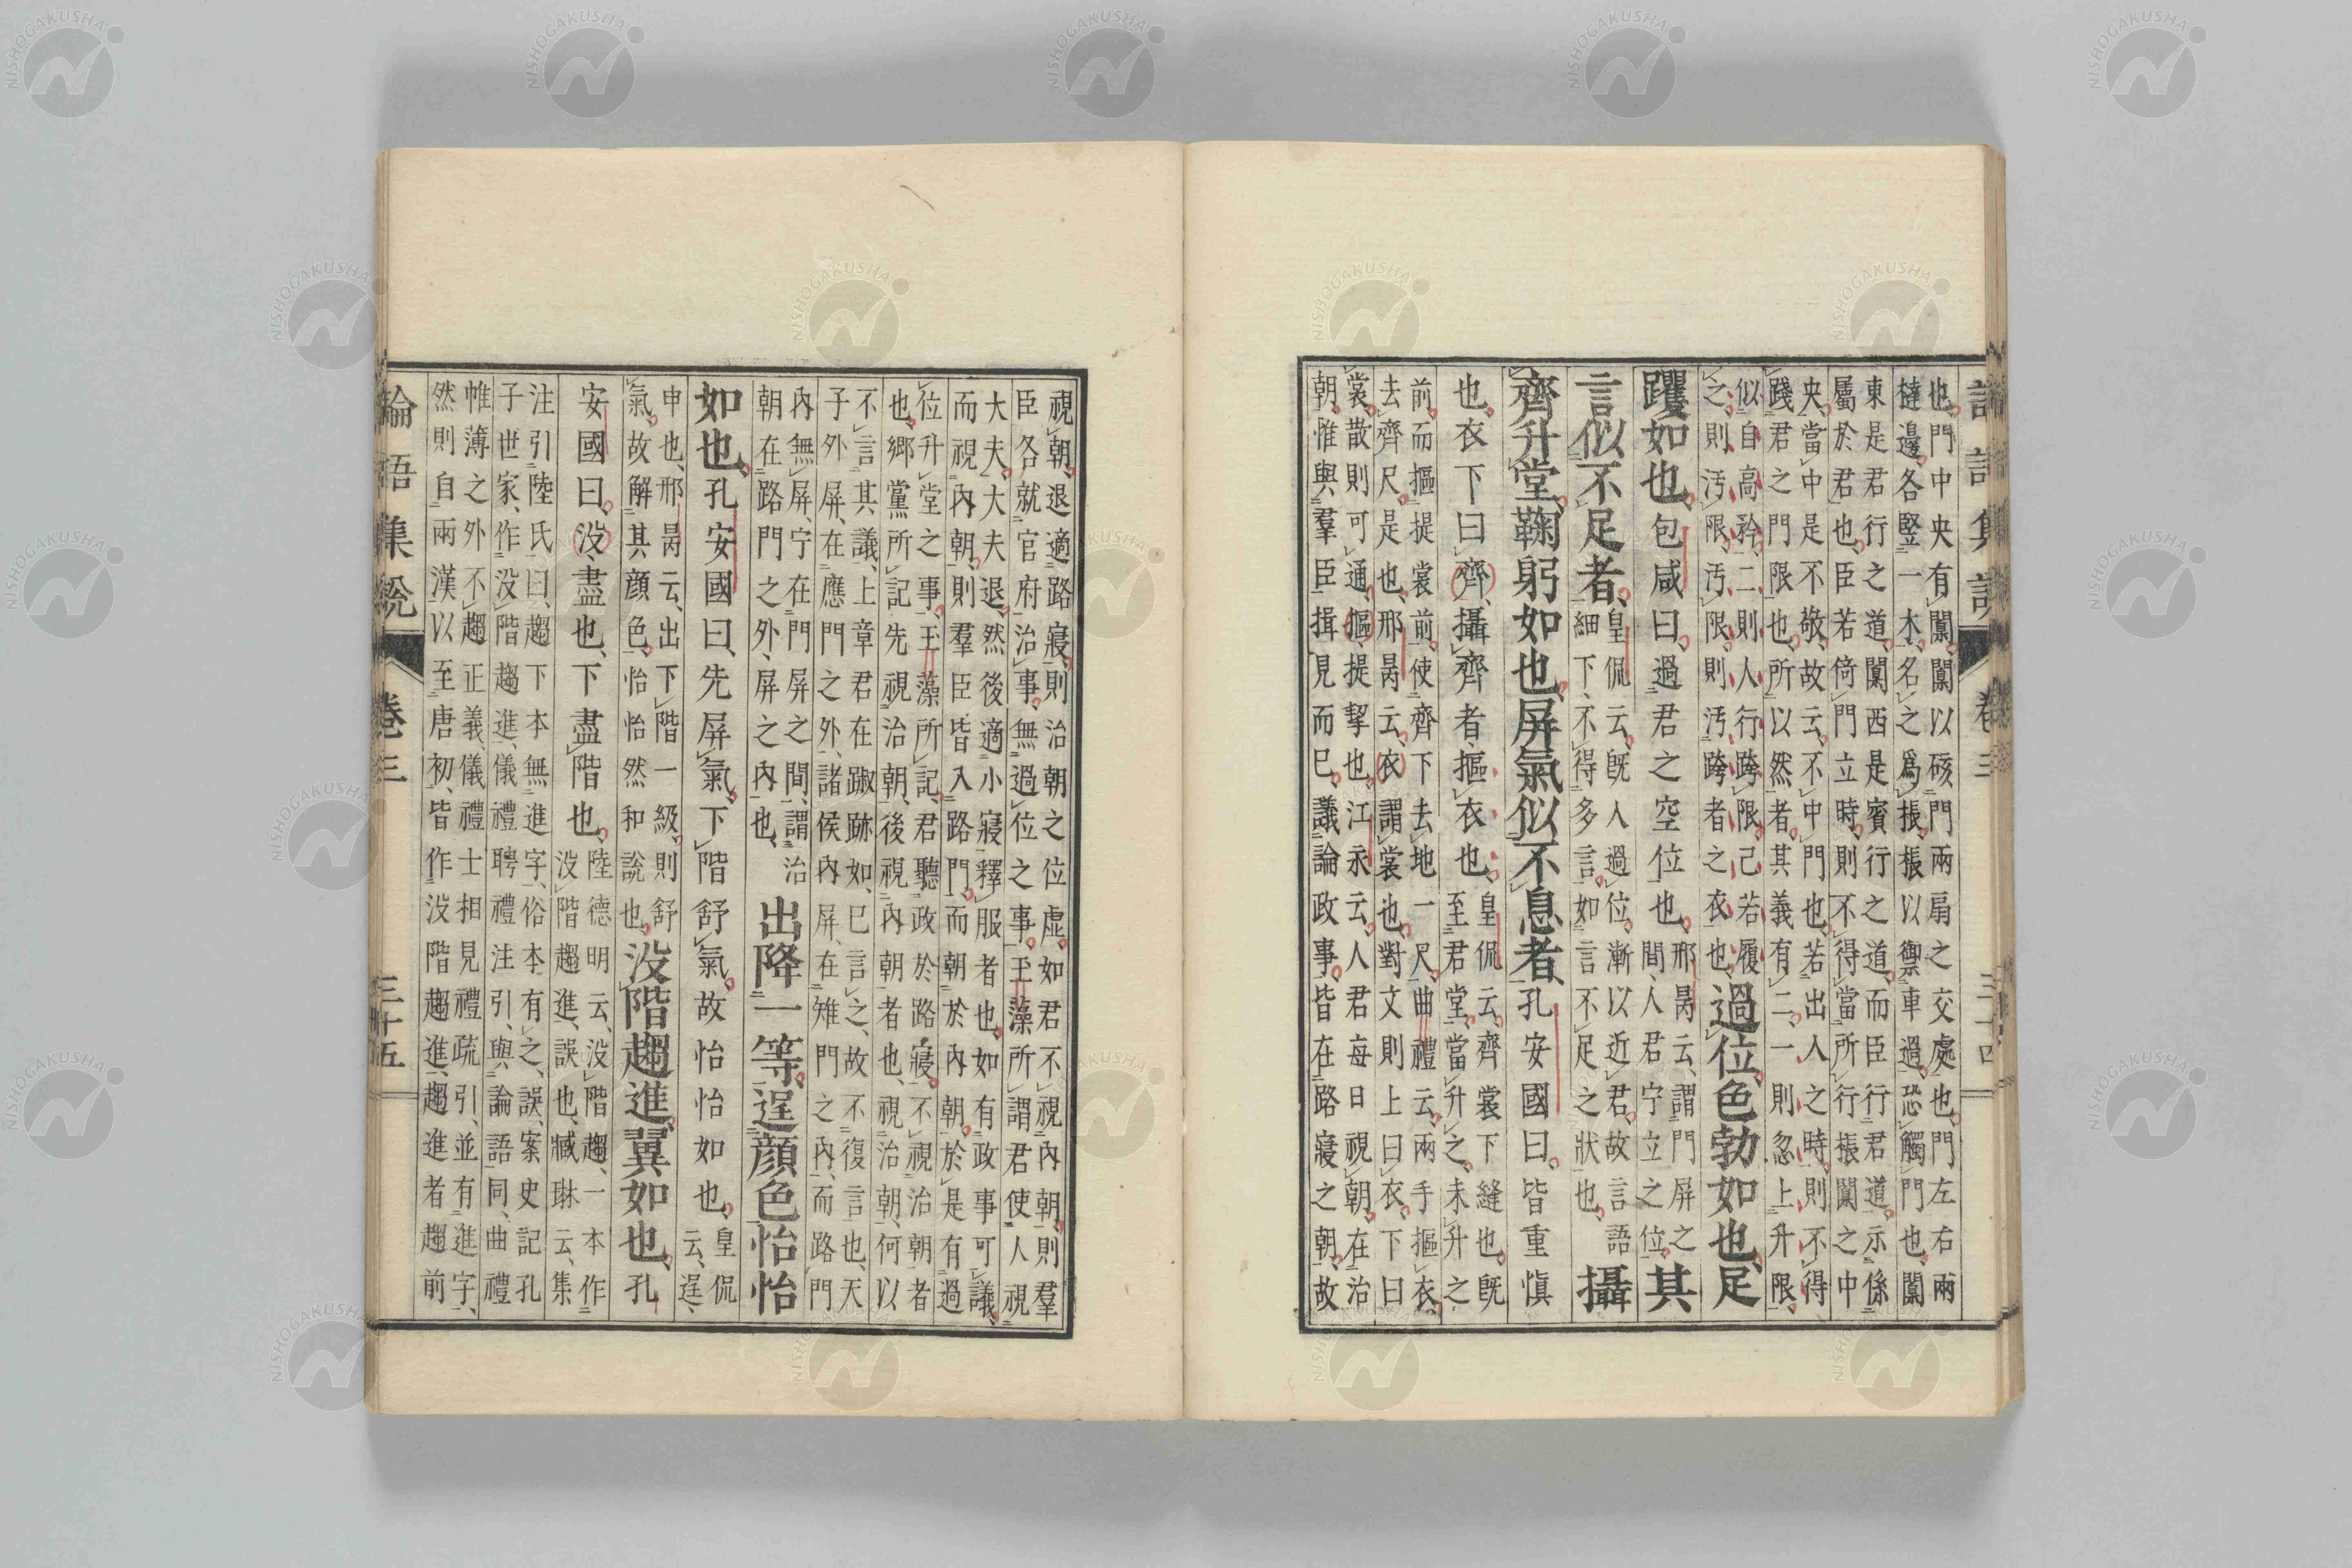 論語集說 卷三 三十四
也、門中央有闑、闑以硋門兩扇之交處也、門左右兩
橽邊、各竪一木、名之爲棖、棖以禦車過、恐觸門也、闑
東是君行之道、闑西是賓行之道、而臣行君道、示係
屬於君也、臣若倚門立時、則不得當所行棖闑之中
央、當中是不敬、故云、不中門也、若出入之時、則不得
踐君之門限也、所以然者、其義有二、一則忽上升限、
似自高矜、二則人行跨限、己若履
之、則汚限、汚限、則汚跨者之衣也、
過位、色勃如也、足
躩如也、包咸曰、過君之空位也、
邢昺云、謂門屏之
間、人君宁立之位、
其
言似不足者、
皇侃云、既入過位、漸以近君、故言語
細下、不得多言、如言不足之狀也、
攝
齊升堂、鞠躬如也、屏氣似不息者、孔安國曰、皆重愼
也、衣下曰齊、攝齊者、摳衣也、
皇侃云、齊裳下縫也、既
至君堂、當升之、未升之
前、而摳提裳前、使齊下去地一尺、曲禮云、兩手摳衣、
去齊尺、是也、邢昺云、衣謂裳也、對文則上曰衣、下曰
裳、散則可通、摳、提挈也、江永云、人君每日視朝、在治
朝、惟與羣臣揖見而已、議論政事、皆在路寢之朝、故
視朝、退適路寢、則治朝之位虛、如君不視內朝、則羣
臣各就官府治事、無過位之事、玉藻所謂君使人視
大夫、大夫退、然後適小寢釋服者也、如有政事可議、
而視內朝、則羣臣皆入路門、而朝於內朝、於是有過
位升堂之事、玉藻所記、君聽政於路寢、不視治朝者
也、鄉黨所記、先視治朝、後視內朝者也、視治朝、何以
不言其議、上章君在踧踖如、已言之、故不復言也、天
子外屏、在應門之外、諸侯內屏、在雉門之內、而路門
內無屏、宁在門屏之間、謂治
朝在路門之外、屏之內也、
出降一等、逞顔色怡怡
如也、孔安國曰、先屏氣、下階舒氣、故怡怡如也、
皇侃
云、逞、
申也、邢昺云、出下階一級、則舒
氣、故解其顔色、怡怡然和說也、
没階趨進、翼如也、孔
安國曰、没、盡也、下盡階也、
陸德明云、没階趨、一本作
没階趨進、誤也、臧琳云、集
注引陸氏曰、趨下本無進字、俗本有之、誤、案史記孔
子世家、作没階趨進、儀禮聘禮注引、與論語同、曲禮
帷薄之外不趨正義、儀禮士相見禮疏引、並有進字、
然則自兩漢以至唐初、皆作没階趨進、趨進者、趨前
論語集說 卷三 三十五
NISHOGAKUSHA